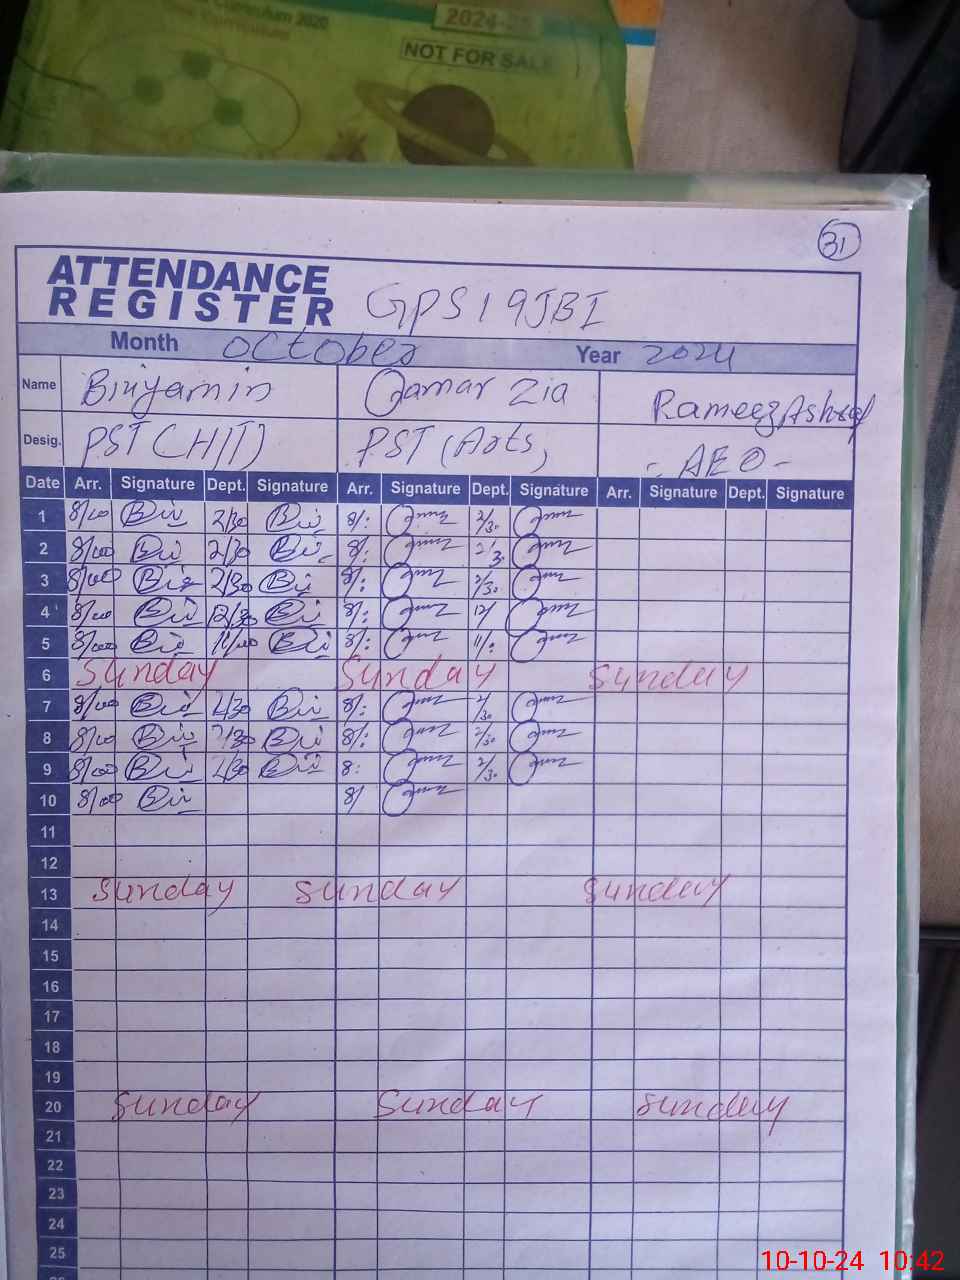 Curriculum 2020
2024-25
NOT FOR SALE
31
ATTENDANCE
REGISTER GPS 19JBI
Month October Year 2024
Name Binyamin Qamar Zia Rameez Ashraf
Desig. PST (HT) PST (Arts) - AEO -
Date Arr. Signature Dept. Signature Arr. Signature Dept. Signature Arr. Signature Dept. Signature
1 8/00 Bin 2/30 Bin 8/: 2/30
2 8/00 Bin 2/30 Bin 8/: 2/30
3 8/00 Bin 2/30 Bin 8/: 2/30
4 8/00 Bin 12/30 Bin 8/: 12/
5 8/00 Bin 11/00 Bin 8/: 11/:
6 Sunday Sunday Sunday
7 8/00 Bin 2/30 Bin 8/: 2/30
8 8/00 Bin 2/30 Bin 8/: 2/30
9 8/00 Bin 2/30 Bin 8: 2/30
10 8/00 Bin 8/
11
12
13 Sunday Sunday Sunday
14
15
16
17
18
19
20 Sunday Sunday Sunday
21
22
23
24
25
10-10-24 10:42